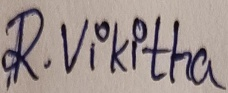 R. Vikitha